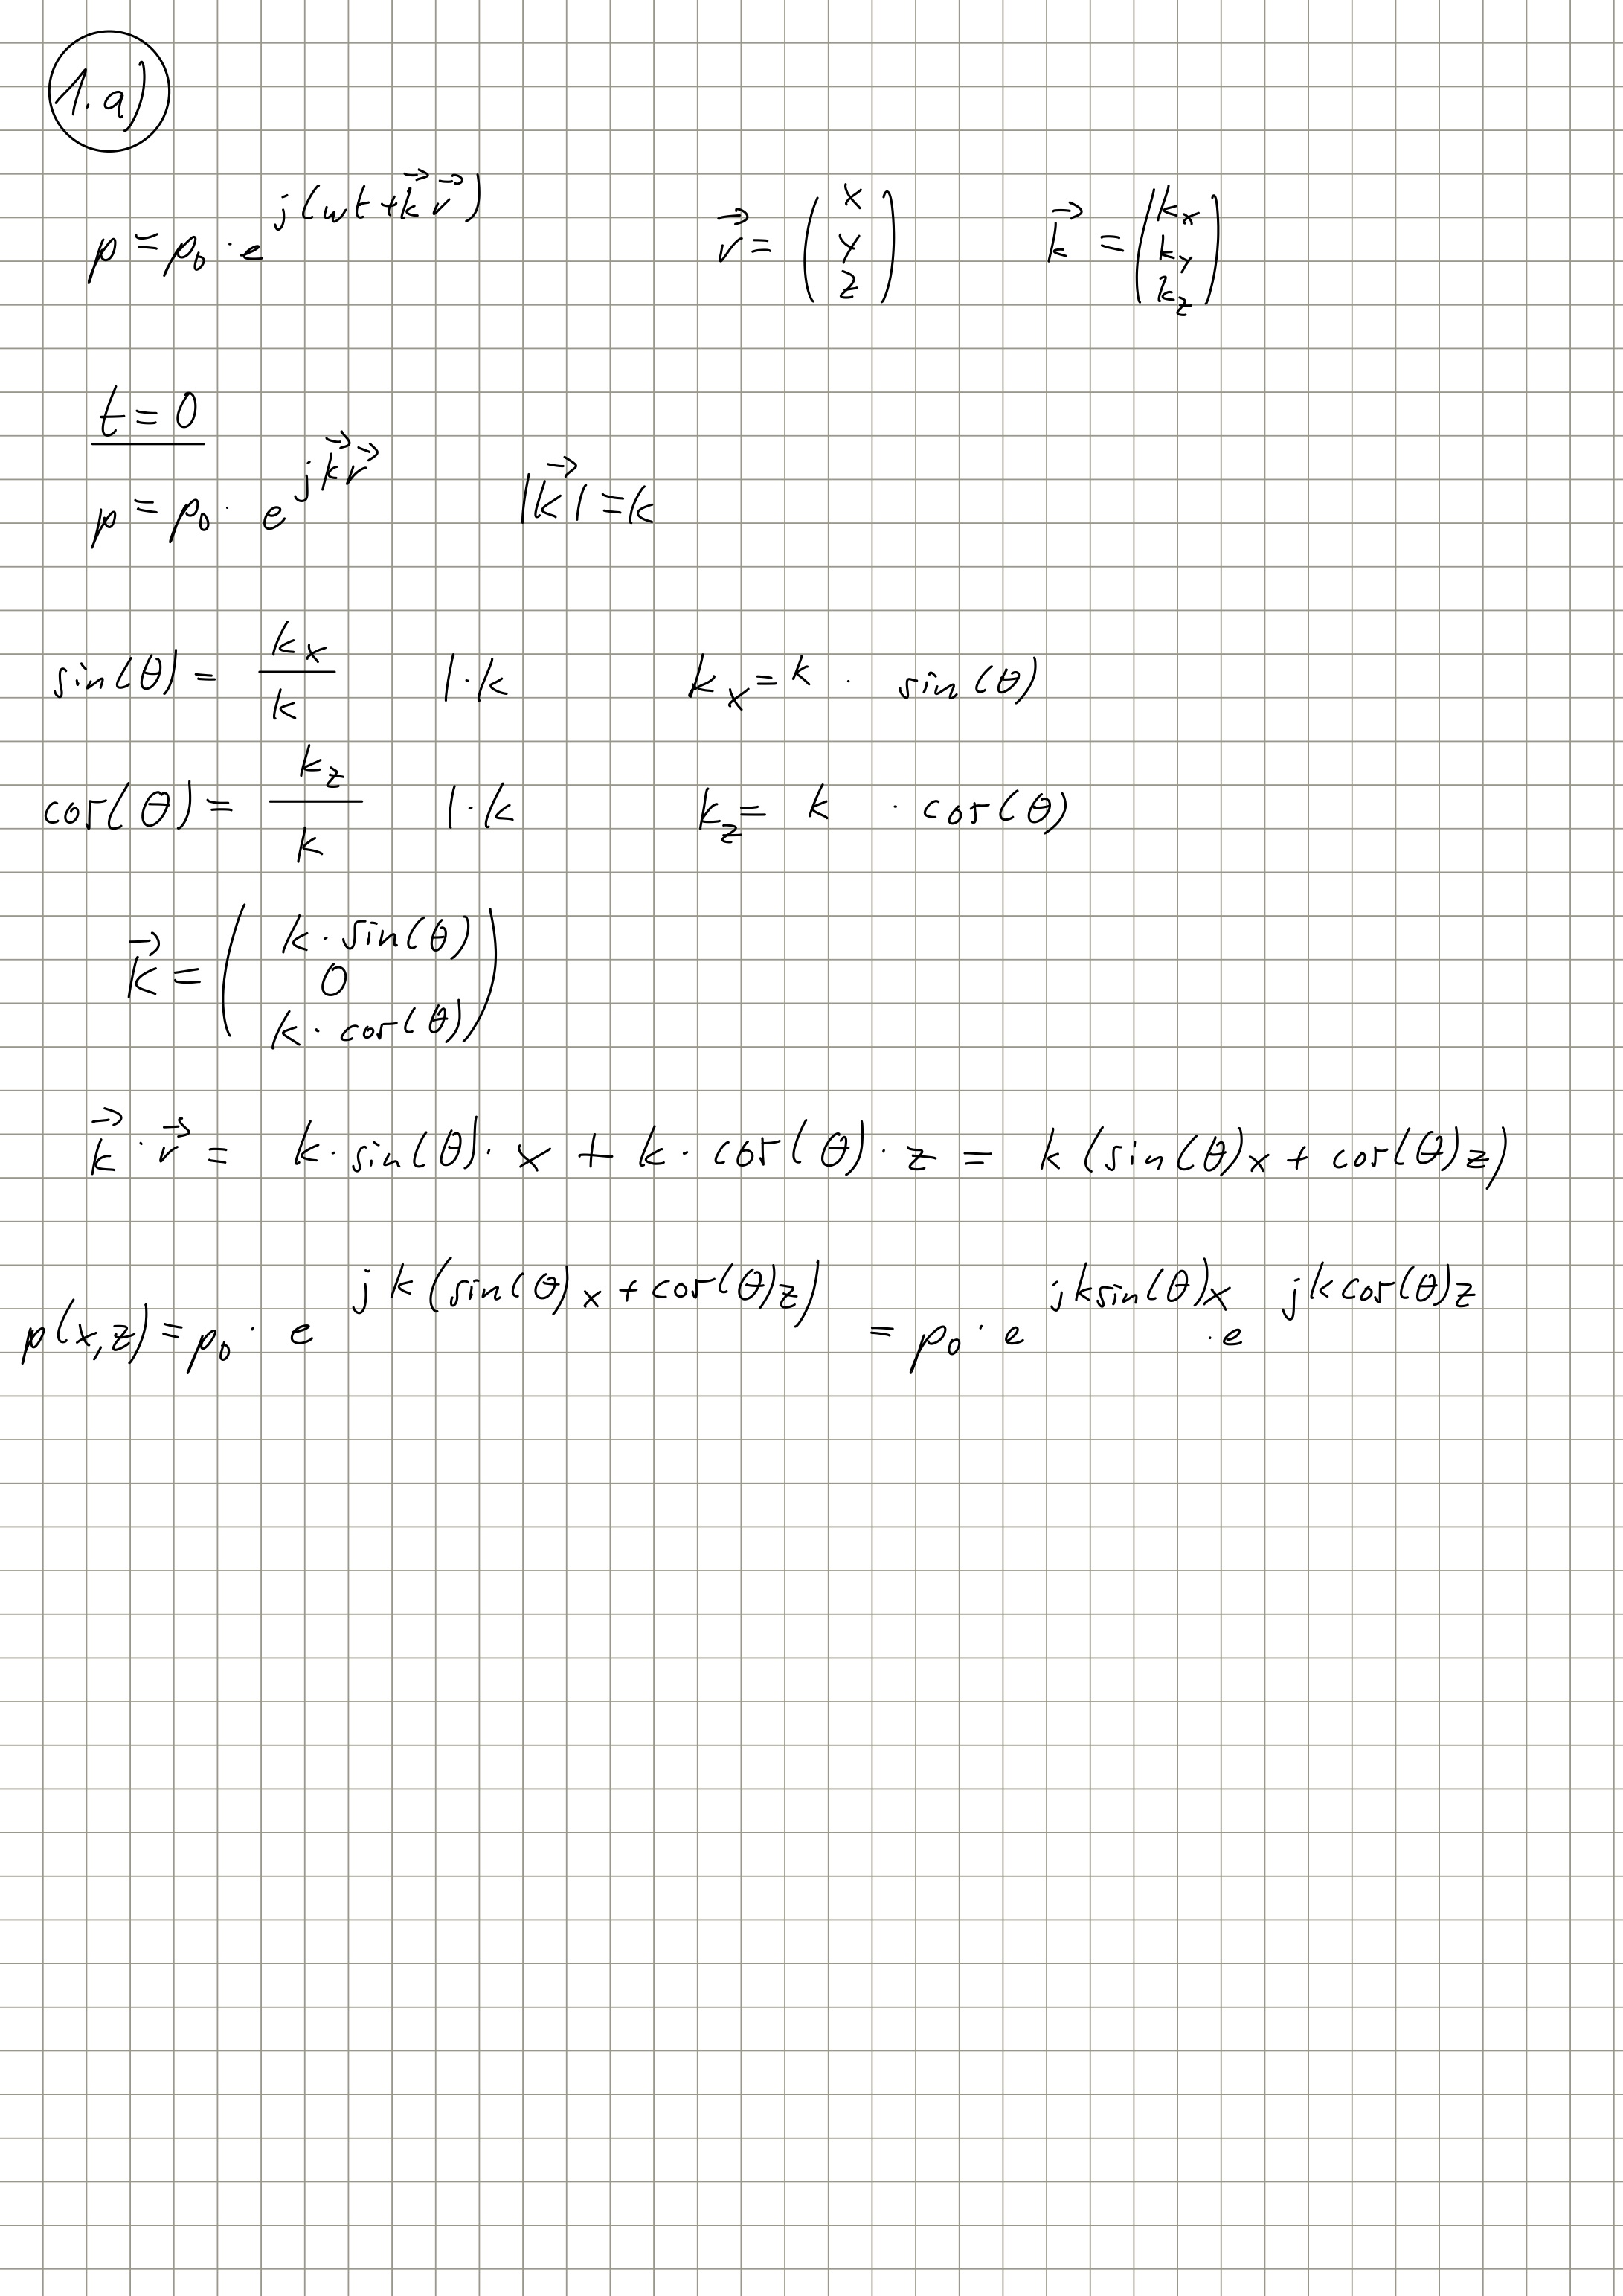 1. a)
p = p₀ · e^{j(ωt + k⃗ r⃗)}    r⃗ = (x y z)    k⃗ = (k_x k_y k_z)
t = 0
p = p₀ · e^{j k⃗ r⃗}    |k⃗| = k
sin(θ) = k_x / k    | · k    k_x = k · sin(θ)
cos(θ) = k_z / k    | · k    k_z = k · cos(θ)
k⃗ = (k · sin(θ) 0 k · cos(θ))
k⃗ · r⃗ = k · sin(θ) · x + k · cos(θ) · z = k (sin(θ) x + cos(θ) z)
p(x, z) = p₀ · e^{j k (sin(θ) x + cos(θ) z)} = p₀ · e^{j k sin(θ) x} · e^{j k cos(θ) z}